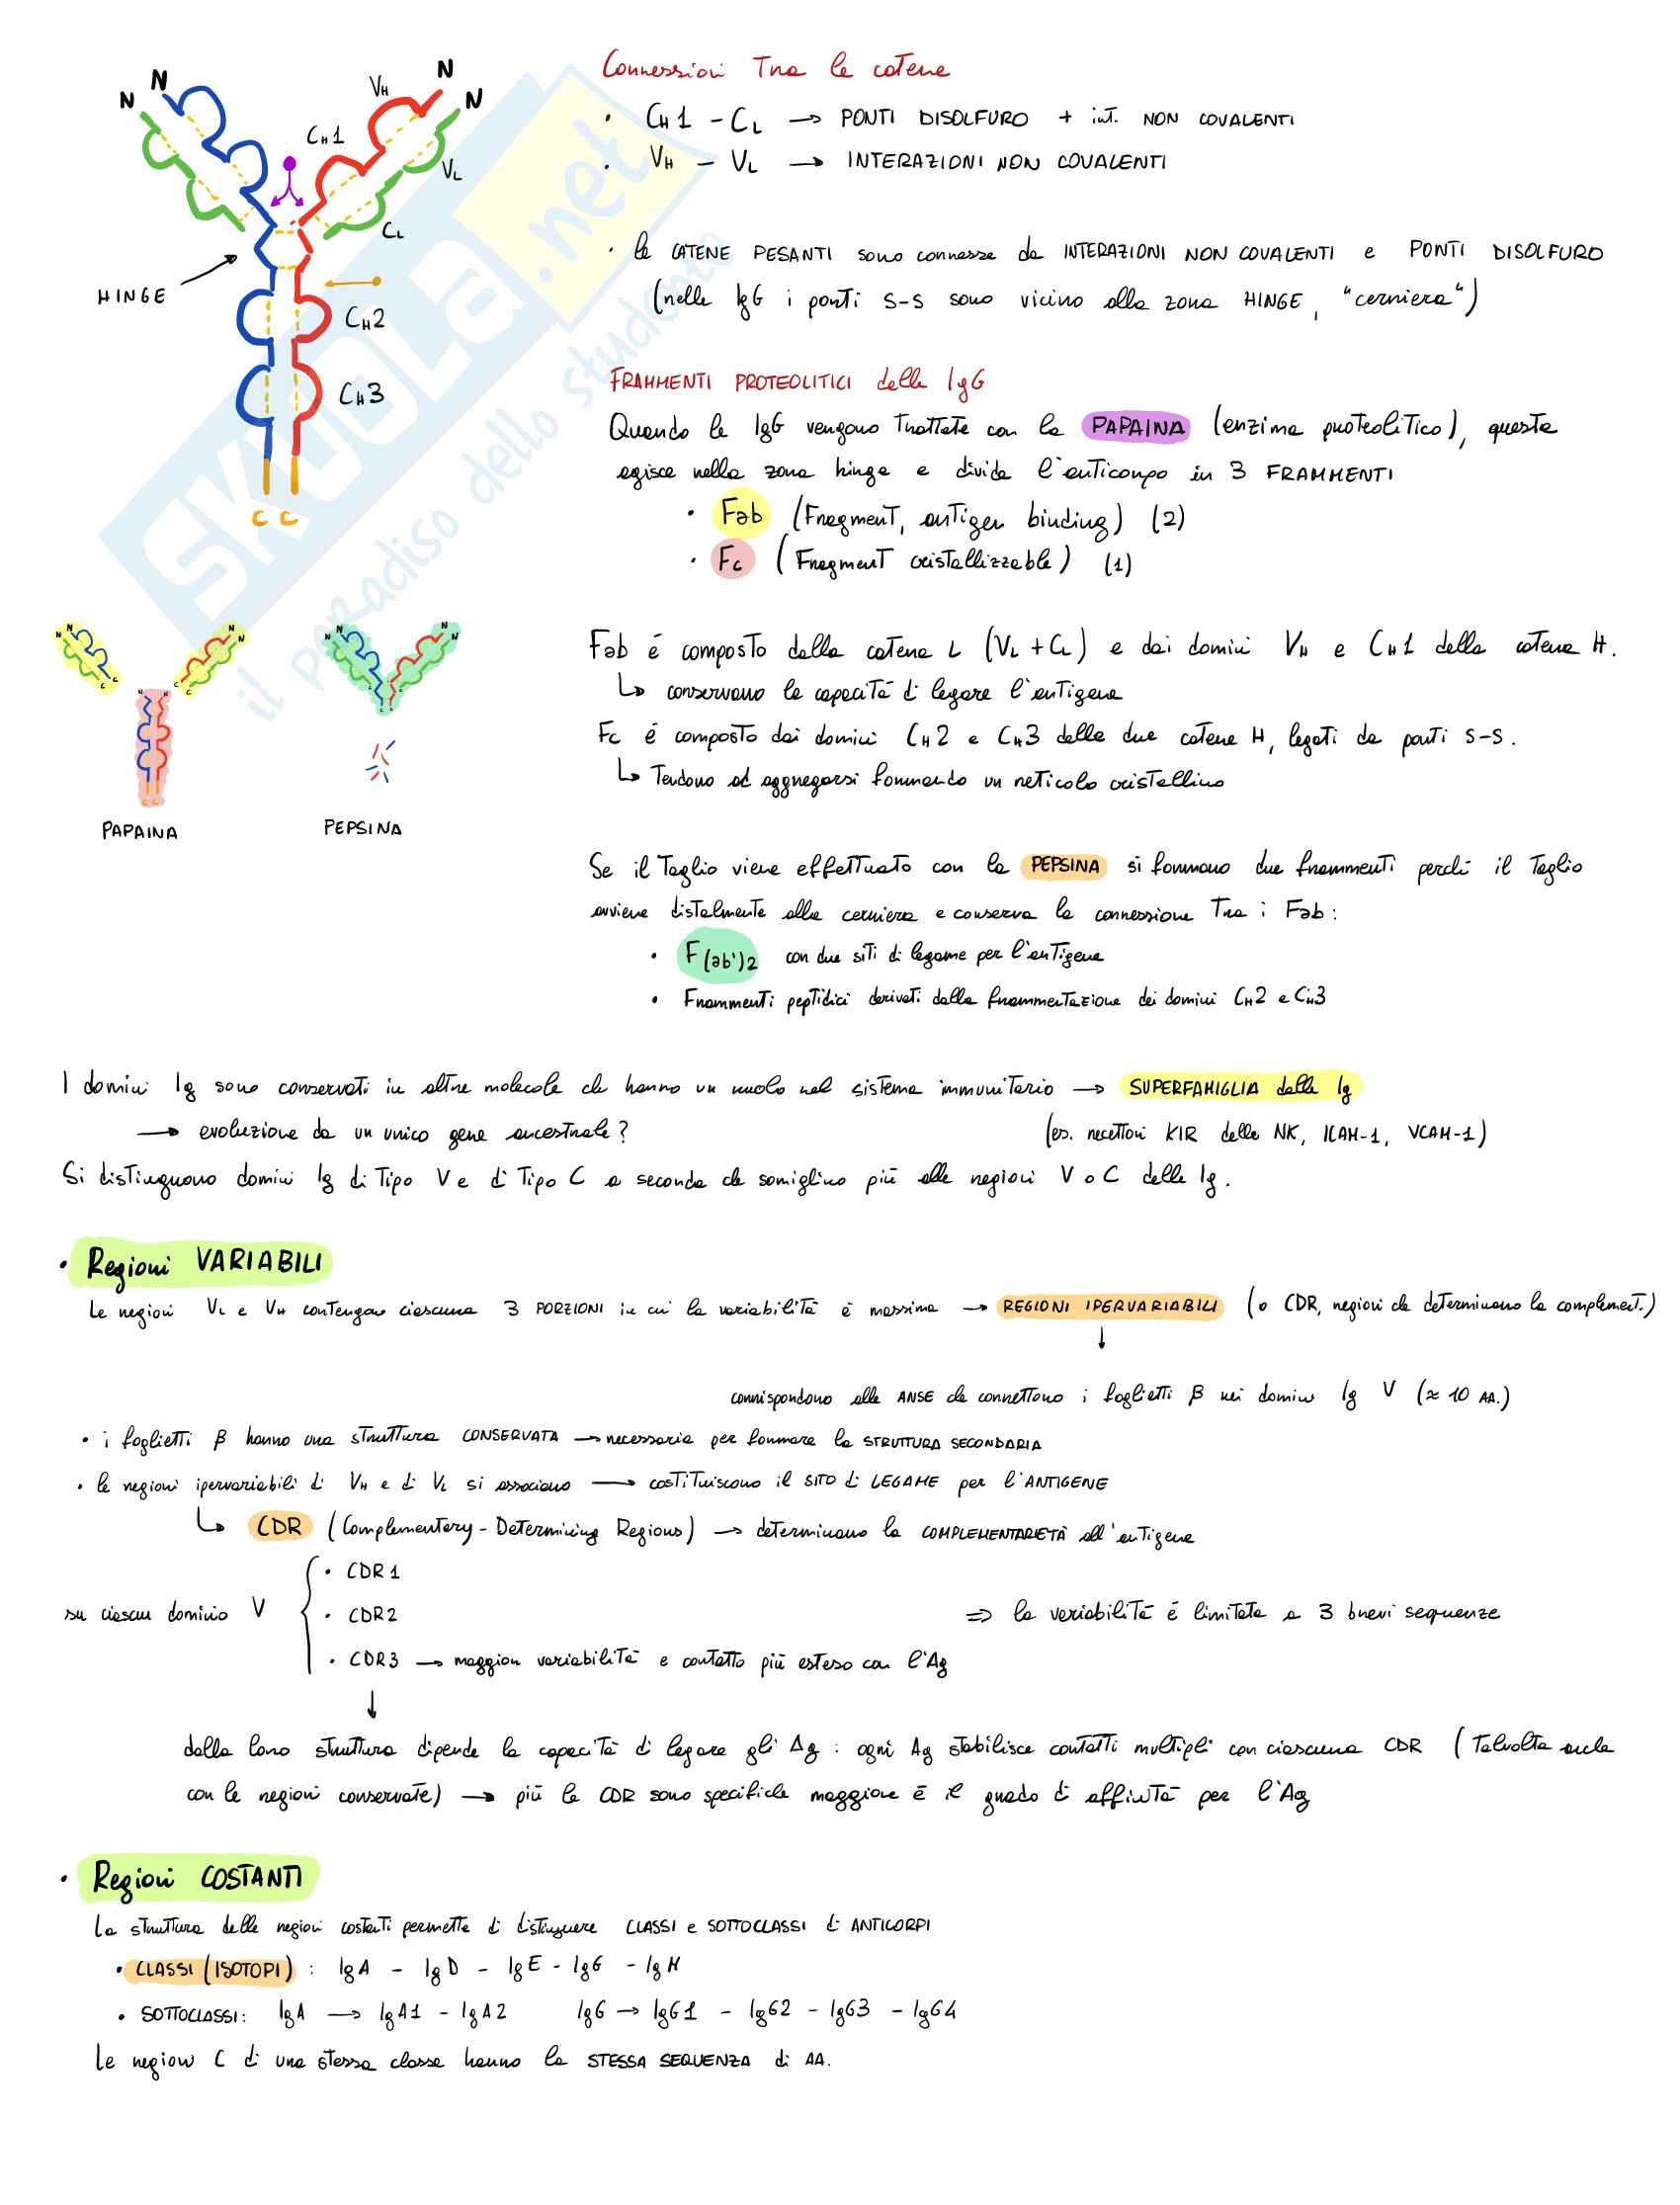 N N N N
VH
CH1
VL
CL
HINGE
CH2
CH3
C C
SKUOLA.net
il paradiso dello studente
Connessioni Tra le catene
• CH1 - CL → PONTI DISOLFURO + int. NON COVALENTI
• VH - VL → INTERAZIONI NON COVALENTI
• le CATENE PESANTI sono connesse da INTERAZIONI NON COVALENTI e PONTI DISOLFURO
(nelle IgG i ponti S-S sono vicino alla zona HINGE, "cerniera")
FRAMMENTI PROTEOLITICI delle IgG
Quando le IgG vengono Trattate con la PAPAINA (enzima proteolitico), questa
agisce nella zona hinge e divide l'anticorpo in 3 FRAMMENTI
• Fab (Fragment, antigen binding) (2)
• Fc (Fragment cristallizzable) (1)
N N N N
C C C C
N N
C C
PAPAINA
N N N N
C C
PEPSINA
Fab é composto dalla catena L (VL + CL) e dai domini VH e CH1 della catena H.
↳ conservano la capacità di legare l'antigene
Fc é composto dai domini CH2 e CH3 delle due catene H, legati da ponti S-S.
↳ Tendono ad aggregarsi formando un reticolo cristallino
Se il Taglio viene effettuato con la PEPSINA si formano due frammenti perché il Taglio
avviene distalmente alla cerniera e conserva la connessione Tra i Fab:
• F(ab')2 con due siti di legame per l'antigene
• Frammenti peptidici derivati dalla frammentazione dei domini CH2 e CH3
I domini Ig sono conservati in altre molecole che hanno un ruolo nel sistema immunitario → SUPERFAMIGLIA delle Ig
→ evoluzione da un unico gene ancestrale? (es. recettori KIR delle NK, ICAM-1, VCAM-1)
Si distinguono domini Ig di Tipo V e di Tipo C a seconda che somiglino più alle regioni V o C delle Ig.
• Regioni VARIABILI
Le regioni VL e VH contengono ciascuna 3 PORZIONI in cui la variabilità è massima → REGIONI IPERVARIABILI (o CDR, regioni che determinano la complement.)
↓
corrispondono alle ANSE che connettono i foglietti β nei domini Ig V (≈ 10 AA.)
• i foglietti β hanno una struttura CONSERVATA → necessaria per formare la STRUTTURA SECONDARIA
• le regioni ipervariabili di VH e di VL si associano → costituiscono il SITO di LEGAME per l'ANTIGENE
↳ CDR (Complementary-Determining Regions) → determinano la COMPLEMENTARIETÀ all'antigene
• CDR1
su ciascun dominio V { • CDR2 ⇒ la variabilità é limitata a 3 brevi sequenze
• CDR3 → maggior variabilità e contatto più esteso con l'Ag
↓
dalla loro struttura dipende la capacità di legare gli Ag: ogni Ag stabilisce contatti multipli con ciascuna CDR (Talvolta anche
con le regioni conservate) → più le CDR sono specifiche maggiore é il grado di affinità per l'Ag
• Regioni COSTANTI
La struttura delle regioni costanti permette di distinguere CLASSI e SOTTOCLASSI di ANTICORPI
• CLASSI (ISOTOPI): IgA - IgD - IgE - IgG - IgM
• SOTTOCLASSI: IgA → IgA1 - IgA2 IgG → IgG1 - IgG2 - IgG3 - IgG4
Le regioni C di una stessa classe hanno la STESSA SEQUENZA di AA.